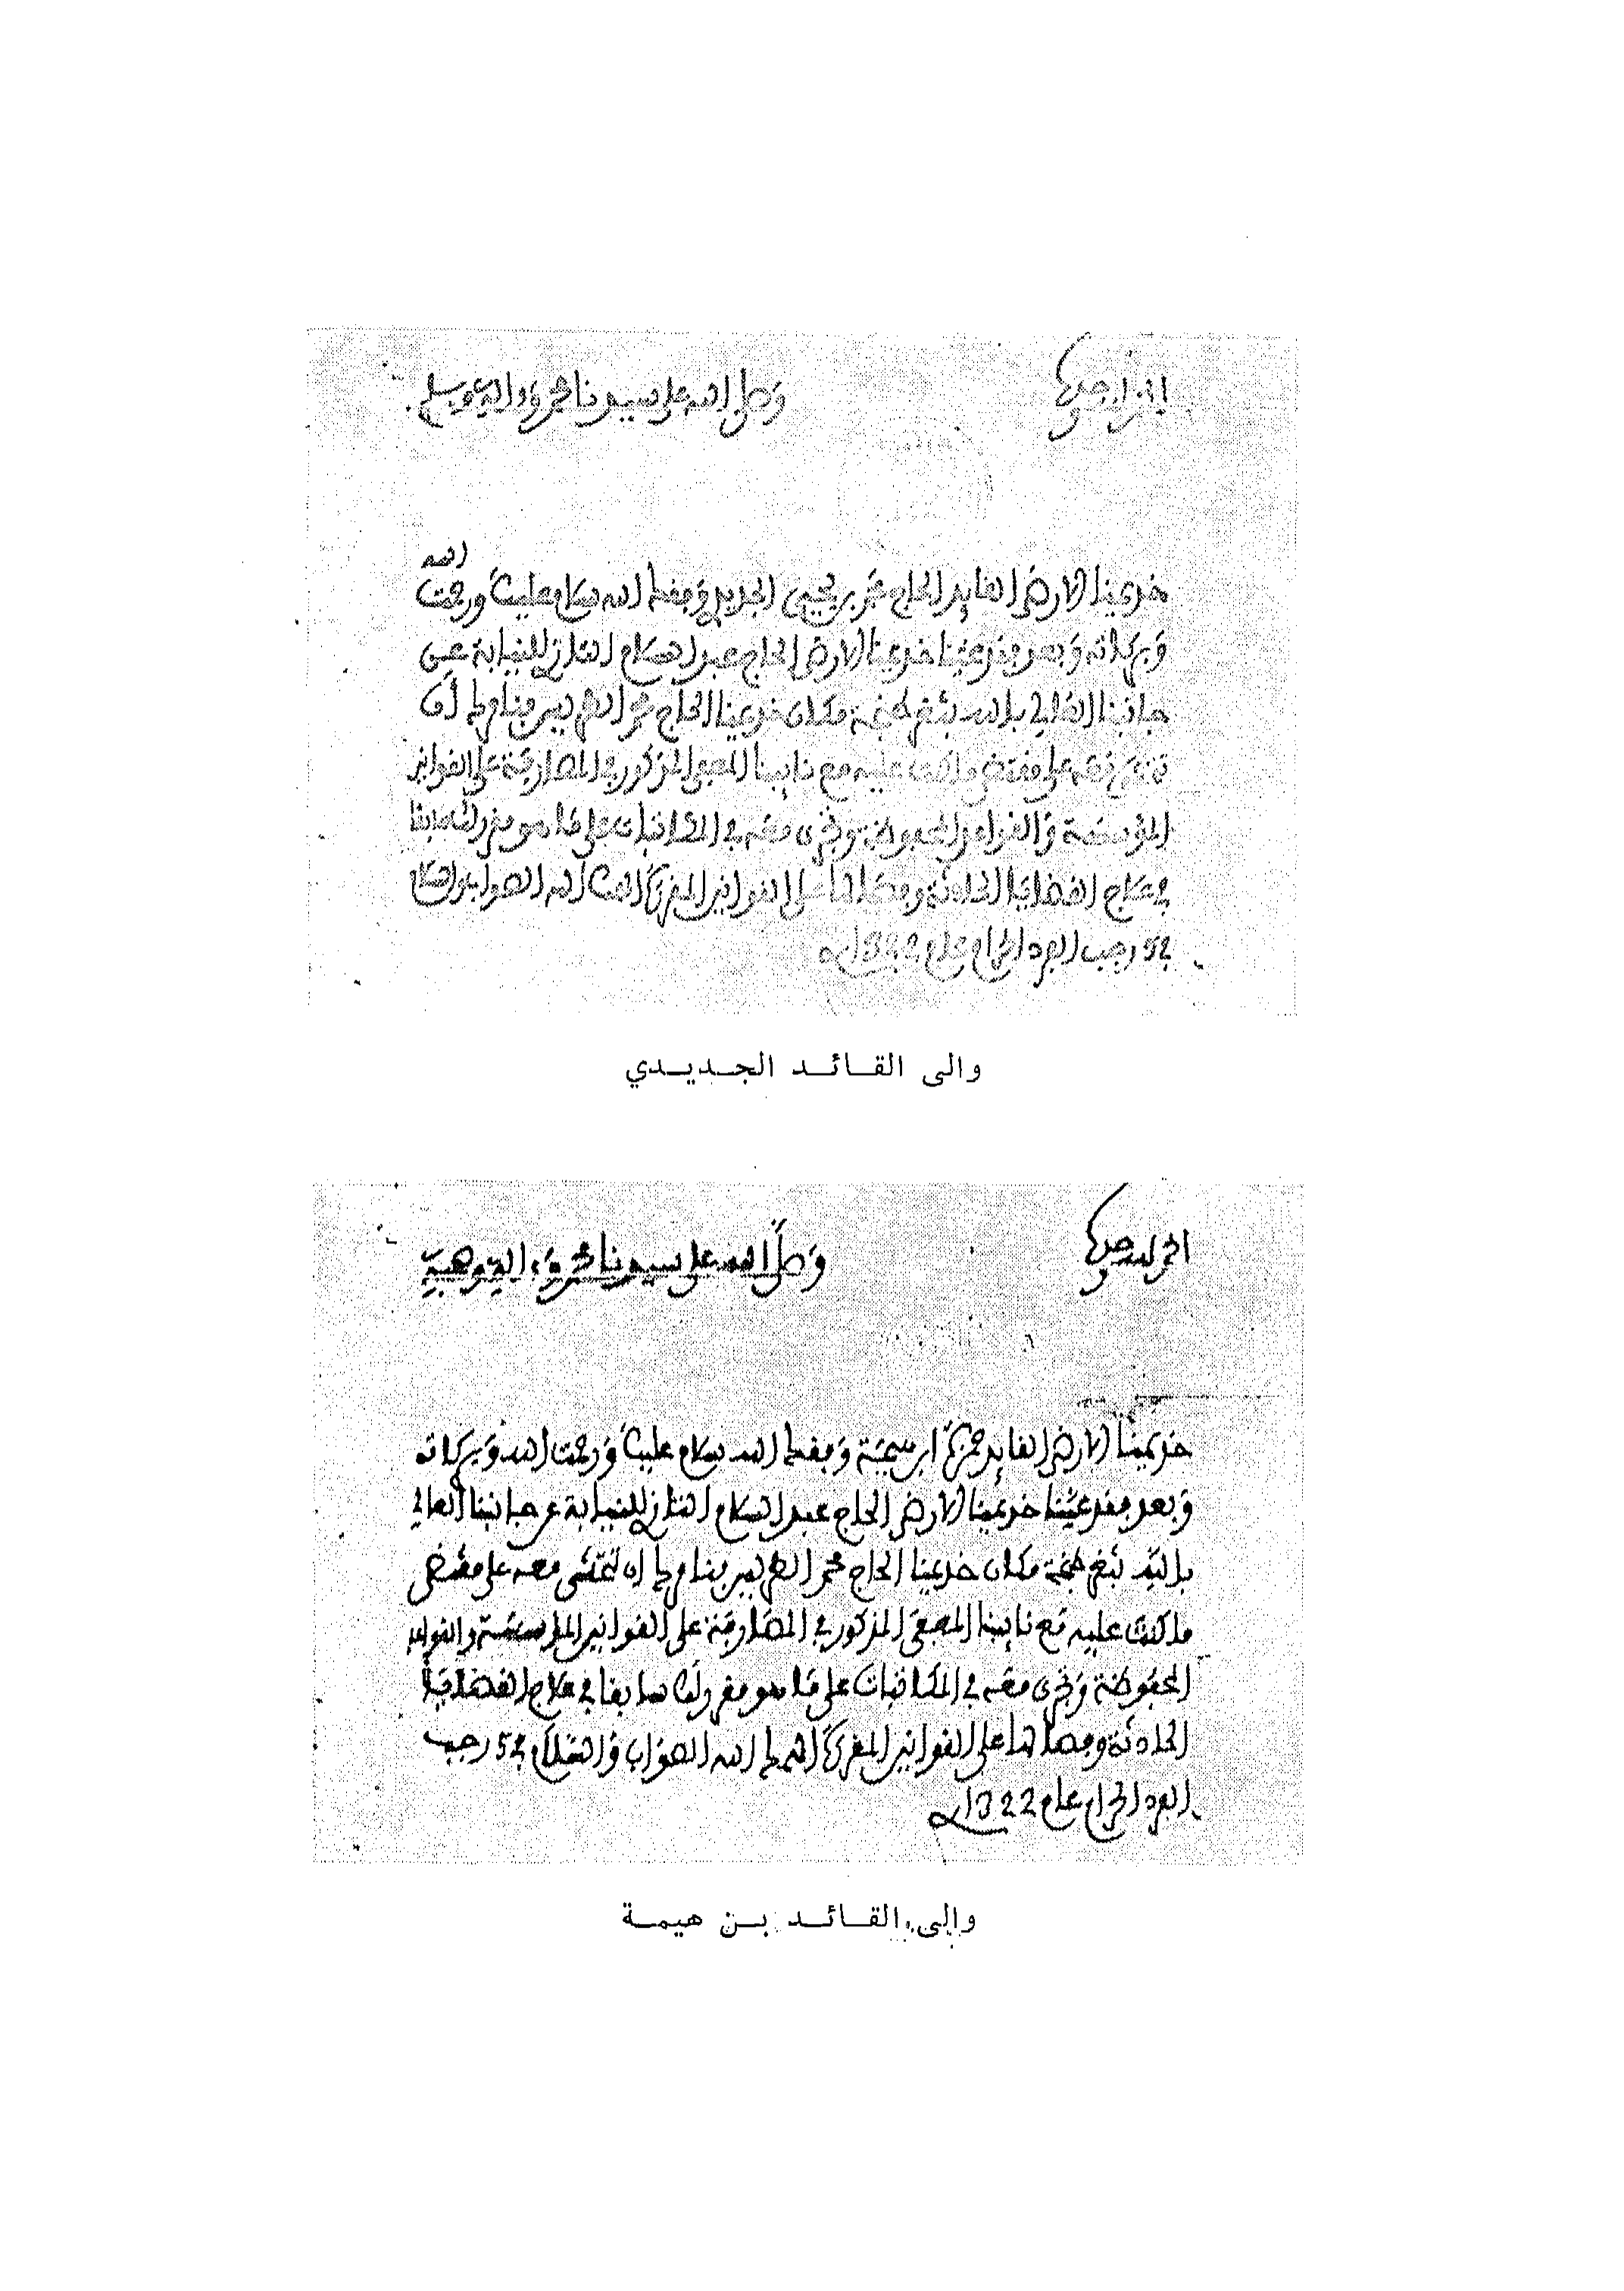 الحمد لله وحده
وصلى الله على سيدنا محمد وءاله وسلم
الله
خديمنا الأرضى القايد الحاج محمد بن يحيى الجديدي وفقك الله سلام عليك ورحمت
وبركاته وبعد فقد عينا خديمنا الأرضى الحاج عبد السلام التازي للنيابة عن
جانبنا العالي بالله بثغر طنجة مكان خديمنا الحاج محمد الطريس فنامرك أن
تتمشى معه على مقتضى ما كنت عليه مع نايبنا المتوفى المذكور في المصارفة على القوانين
المؤسسة والقواعد المحفوظة وتجري معه في المكاتبات على ما هو مقرر لك سابقا
في علاج القضايا الحادثة وفصالها على القوانين المقررة ألهمك الله الصواب والسلام
في 25 رجب الفرد الحرام عام 1322
والى القائد الجديدي
الحمد لله وحده
وصلى الله على سيدنا محمد وءاله وصحبه
خديمنا الأرضى القايد حمزة ابن هيمة وفقك الله سلام عليك ورحمت الله وبركاته
وبعد فقد عينا خديمنا الأرضى الحاج عبد السلام التازي للنيابة عن جانبنا العالي
بالله بثغر طنجة مكان خديمنا الحاج محمد الطريس فنامرك ان تتمشى معه على مقتضى
ما كنت عليه مع نايبنا المتوفى المذكور في المصارفة على القوانين المؤسسة والقواعد
المحفوظة وتجري معه في المكاتبات على ما هو مقرر لك سابقا في علاج القضايا
الحادثة وفصالها على القوانين المقررة الهمك الله الصواب والسلام في 25 رجب
الفرد الحرام عام 1322
والى القائد بن هيمة